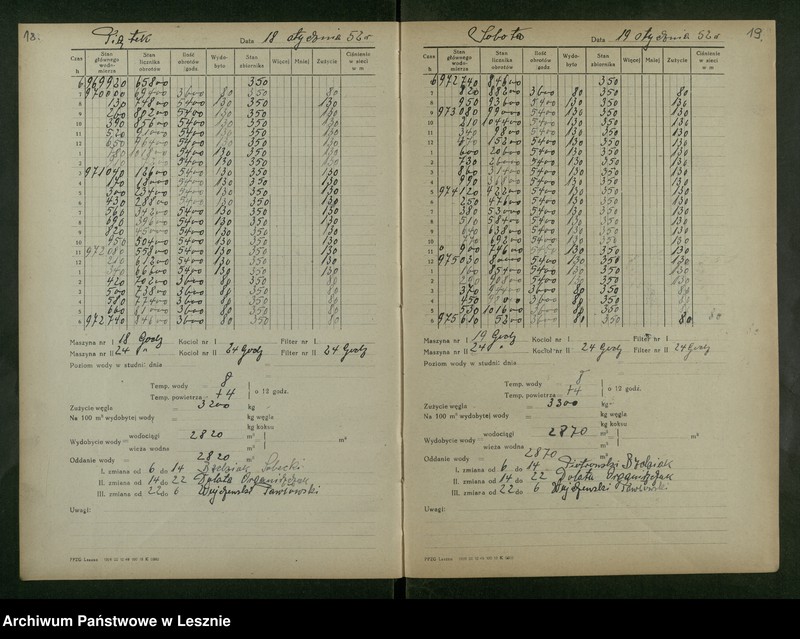 18.
Piątek Data 18 stycznia 52 r
Czas h
Stan głównego wodomierza
Stan licznika obrotów
Ilość obrotów godz.
Wydobyto
Stan zbiornika
Więcej
Mniej
Zużycie
Ciśnienie w sieci w m
6 969920 65800 350
7 970000 69400 3600 80 350 80
8 130 74800 5400 130 350 130
9 260 80200 5400 130 350 130
10 390 85600 5400 130 350 130
11 520 91000 5400 130 350 130
12 650 96400 5400 130 350 130
1 5400 130 350 130
2 5400 130 350 130
3 971040 12600 5400 130 350 130
4 170 18000 5400 130 350 130
5 300 23400 5400 130 350 130
6 430 28800 5400 130 350 130
7 560 34200 5400 130 350 130
8 690 39600 5400 130 350 130
9 820 45000 5400 130 350 130
10 950 50400 5400 130 350 130
11 972080 55800 5400 130 350 130
12 210 61200 5400 130 350 130
1 340 66600 5400 130 350 130
2 420 70200 3600 80 350 80
3 500 73800 3600 80 350 80
4 580 77400 3600 80 350 80
5 660 81000 3600 80 350 80
6 972740 84600 3600 80 350 80
Maszyna nr I 18 Godz Kocioł nr I Filter nr I
Maszyna nr II 24 " Kocioł nr II 24 Godz Filter nr II 24 Godz
Poziom wody w studni: dnia
Temp. wody = 8
Temp. powietrza = +4 o 12 godz.
Zużycie węgla = 3200 kg
Na 100 m³ wydobytej wody = kg węgla
kg koksu
Wydobycie wody wodociągi 2820 m³
wieża wodna m³ m³
Oddanie wody = 2820 m³
I. zmiana od 6 do 14 Bździak Sobecki
II. zmiana od 14 do 22 Dolata Organiszczak
III. zmiana od 22 do 6 Pawłowski
Uwagi:
PPZG Leszno
19.
Sobota Data 19 stycznia 52 r
Czas h
Stan głównego wodomierza
Stan licznika obrotów
Ilość obrotów godz.
Wydobyto
Stan zbiornika
Więcej
Mniej
Zużycie
Ciśnienie w sieci w m
6 972740 84600 350
7 820 88200 3600 80 350 80
8 950 93600 5400 130 350 130
9 973080 99000 5400 130 350 130
10 210 104400 5400 130 350 130
11 340 9800 5400 130 350 130
12 470 15200 5400 130 350 130
1 600 20600 5400 130 350 130
2 730 26000 5400 130 350 130
3 860 31400 5400 130 350 130
4 990 36800 5400 130 350 130
5 974120 42200 5400 130 350 130
6 250 47600 5400 130 350 130
7 380 53000 5400 130 350 130
8 510 58400 5400 130 350 130
9 640 63800 5400 130 350 130
10 770 69200 5400 130 350 130
11 900 74600 5400 130 350 130
12 975030 80000 5400 130 350 130
1 160 85400 5400 130 350 130
2 3600 80 350 80
3 370 3600 80 350 80
4 450 3600 80 350 80
5 530 101600 3600 80 350 80
6 975610 5200 3600 80 350 80
Maszyna nr I 19 Godz Kocioł nr I Filter nr I
Maszyna nr II 24 " Kocioł nr II 24 Godz Filter nr II 24 Godz
Poziom wody w studni: dnia
Temp. wody =
Temp. powietrza = +4 o 12 godz.
Zużycie węgla = 3300 kg
Na 100 m³ wydobytej wody = kg węgla
kg koksu
Wydobycie wody wodociągi 2870 m³
wieża wodna m³ m³
Oddanie wody = 2870 m³
I. zmiana od 6 do 14 Piotrowski Bździak
II. zmiana od 14 do 22 Dolata Organiszczak
III. zmiana od 22 do 6 Pawłowski
Uwagi:
PPZG Leszno
Archiwum Państwowe w Lesznie